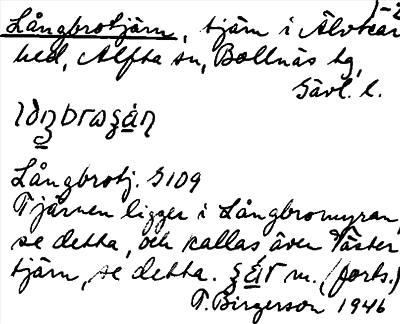 1-2
Långbrotjärn, tjärn i Älvkar
hed, Alfta sn, Bollnäs tg,
Gävl. l.
Långbrotj. G109
Tjärnen ligger i Långbromyran,
se detta, och kallas även Väster
tjärn, se detta. m. (forts.)
T. Birgerson 1946